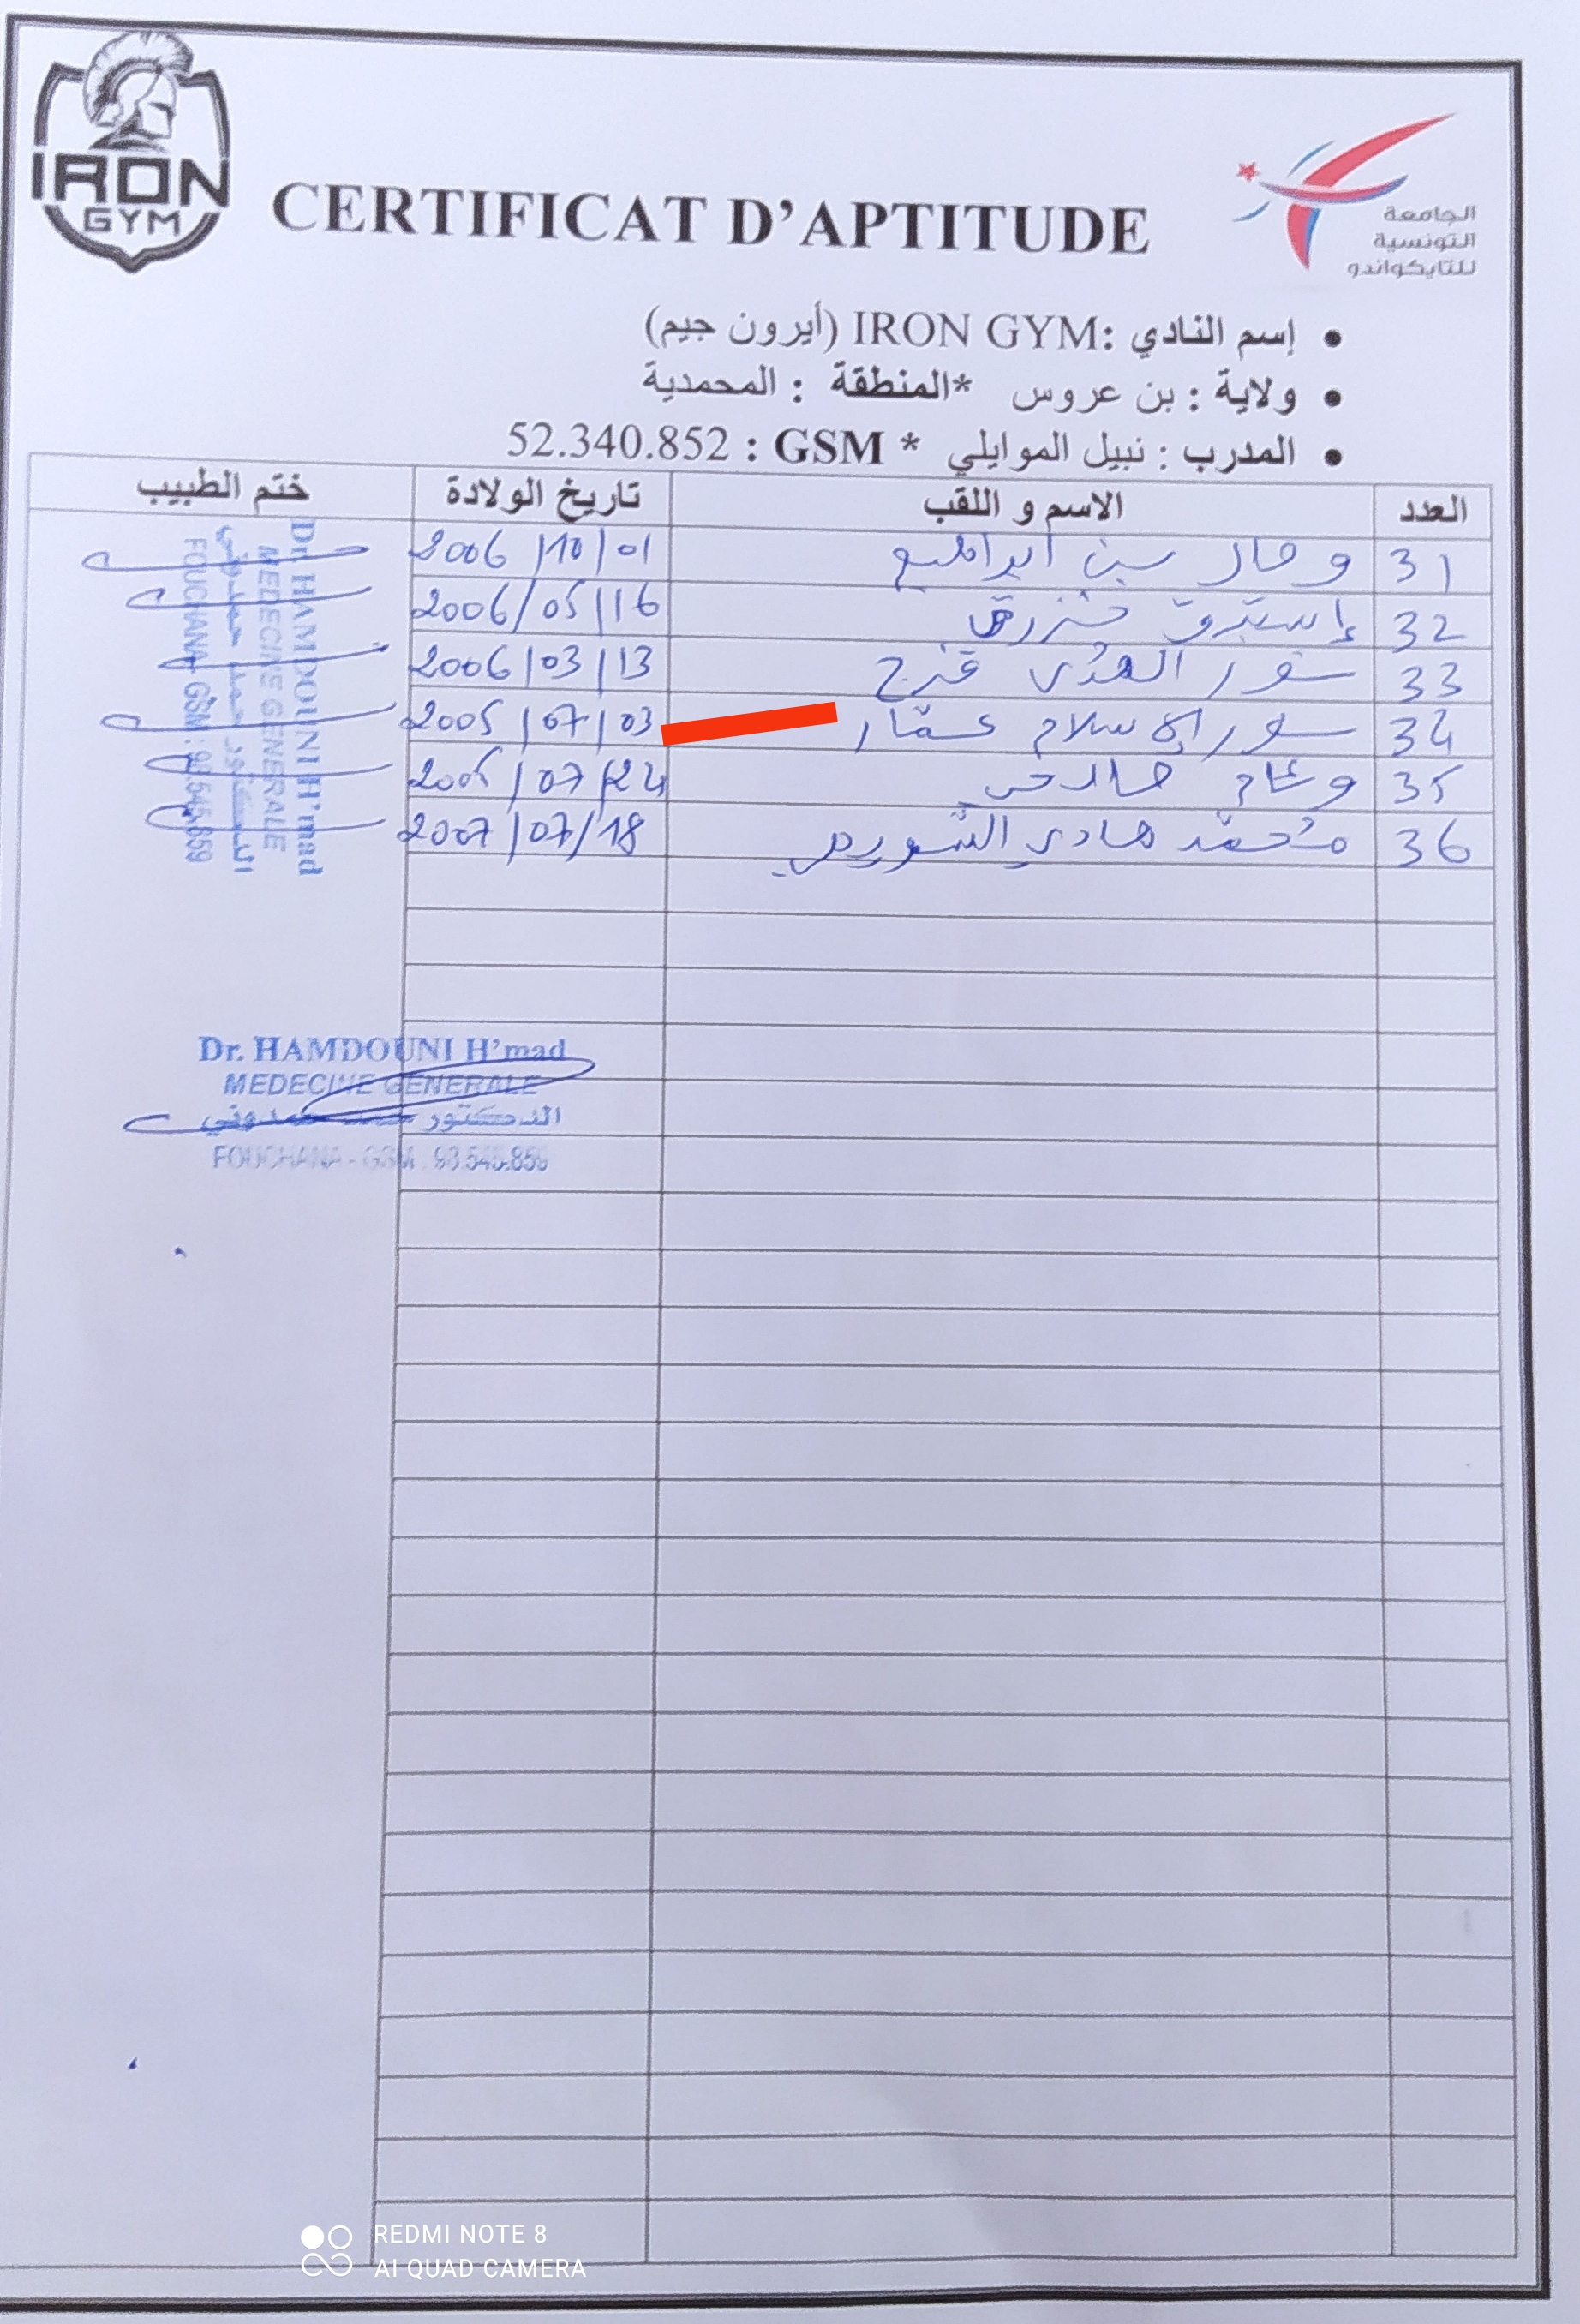 IRON
GYM
CERTIFICAT D'APTITUDE
الجامعة
التونسية
للتايكواندو
إسم النادي :IRON GYM (أيرون جيم)
ولاية : بن عروس *المنطقة : المحمدية
المدرب : نبيل الموايلي * GSM : 52.340.852
العدد الاسم و اللقب تاريخ الولادة ختم الطبيب
31 بن ابراهيم 2006/10/01
32 إستبرق 2006/05/16
33 نور الهدى فرج 2006/03/13
34 نور الإسلام عمّار 2005/07/03
35 وئام 2005/07/24
36 محمّد هادي 2007/07/18
Dr. HAMDOUNI H'mad
MEDECINE GENERALE
الدكتور حمد حمدوني
FOUCHANA - GSM : 98.545.859
Dr. HAMDOUNI H'mad
MEDECINE GENERALE
الدكتور حمد حمدوني
FOUCHANA - GSM : 98.545.859
REDMI NOTE 8
AI QUAD CAMERA